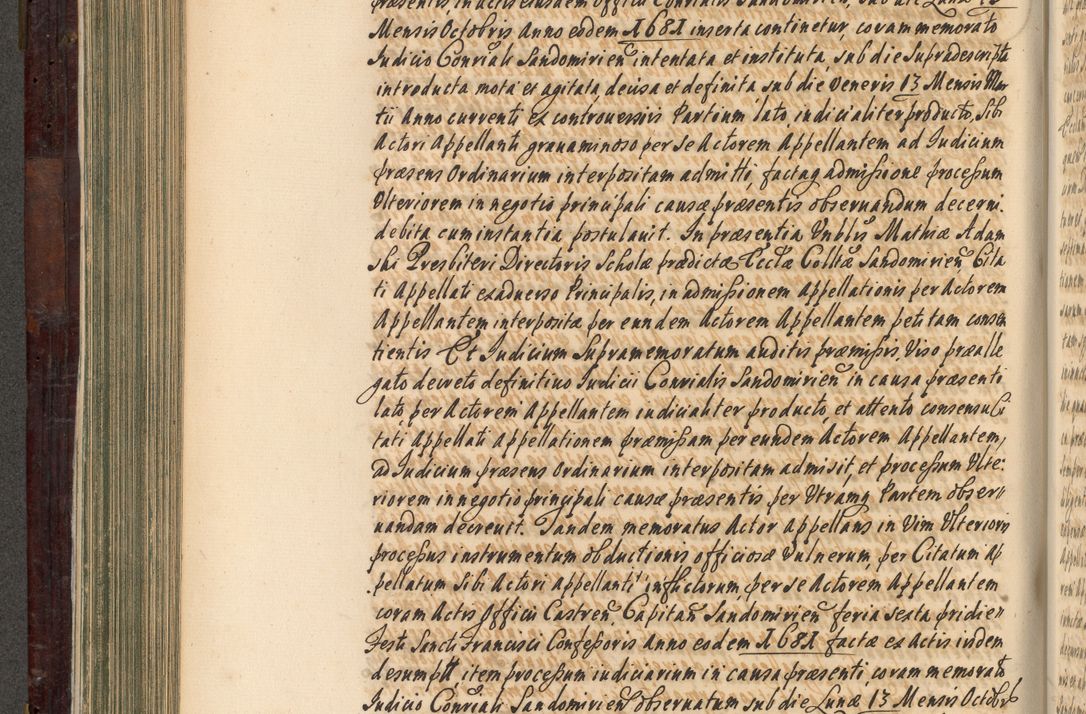 præsentis in actis eiusdem Officii Conrialis Sandomirien, sub die Lunæ 13
Mensis Octobris Anno eodem 1681 inserta continetur, coram memorato
Iudicio Conriali Sandomirien intentata et instituta, sub die Supradescripta
introducta mota et agitata decisa et definita, sub die Veneris 13 Mensis Mar
tii Anno currenti ex controversiis Partium lato, indicialiter producto, Sibi
Actori Appellanti gravaminoso per se Actorem Appellantem ad Iudicium
præsens Ordinarium interpositam admitti, factaq admißione proceßum
Ulteriorem in negotio principali causæ præsentis observandum decerni.
debita cum instantia postulavit. In præsentia Vnblis Mathiæ Adam
ski Presbiteri Directoris Scholæ prædictæ Ecclæ Colltæ Sandomirien Cita
ti Appellati ex adverso Principalis, in admißionem Appellationis per Actorem
Appellantem interpositæ per eundem Actorem Appellantem petitam consen
tientis Et Iudicium Supramemoratum auditis præmißis, Viso præalle
gato decreto definitivo Iudicii Conrialis Sandomirien in causa præsenti
lato, per Actorem Appellantem iudicialiter producto, et attento consensu Ci
tati Appellati Appellationem præmißam per eundem Actorem Appellantem,
ad Iudicium præsens Ordinarium interpositam admisit, et proceßum Ulte:
riorem in negotio principali causæ præsentis per Utramq Partem obser
vandam decrevit. Tandem memoratus Actor Appellans in Vim Ulterioris
proceßus instrumentum obductionis officiosæ Vulnerum, per Citatum Ap
pellatum Sibi Actori Appellanti inflictorum, per se Actorem Appellantem
coram Actis Officii Castren. Capitan Sandomirien feria sexta pridie
Festi Sancti Francisci Confeßoris Anno eodem 1681 factæ ex Actis iisdem
desumptæ, item proceßum iudiciarium in causa præsenti, coram memorato
Iudicio Conriali Sandomirien observatum sub die Lunæ 13 Mensis Octobris